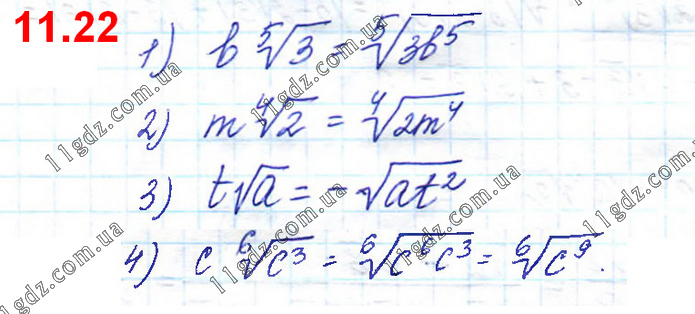 11.22
1) b ⁵√3 = ⁵√3b⁵
2) m ⁴√2 = ⁴√2m⁴
3) t√a = -√at²
4) c ⁶√c³ = ⁶√c⁶c³ = ⁶√c⁹.
11gdz.com.ua
11gdz.com.ua
11gdz.com.ua
11gdz.com.ua
11gdz.com.ua
11gdz.com.ua